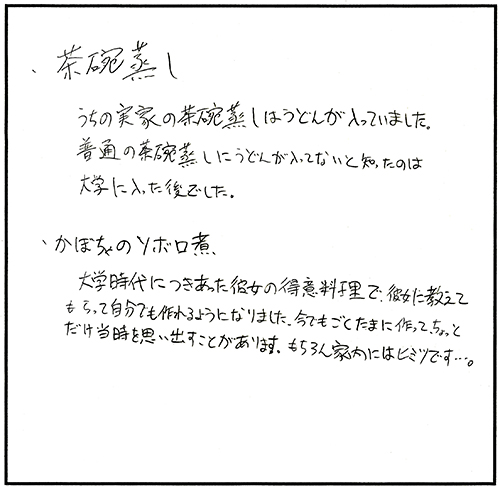 、茶碗蒸し
うちの実家の茶碗蒸しはうどんが入っていました。
普通の茶碗蒸しにうどんが入ってないと知ったのは
大学に入った後でした。
、かぼちゃのソボロ煮
大学時代につきあった彼女の得意料理で、彼女に教えて
もらって自分でも作れるようになりました。今でもごくたまに作って、ちょっと
だけ当時を思い出すことがあります。もちろん家内にはヒミツです…。